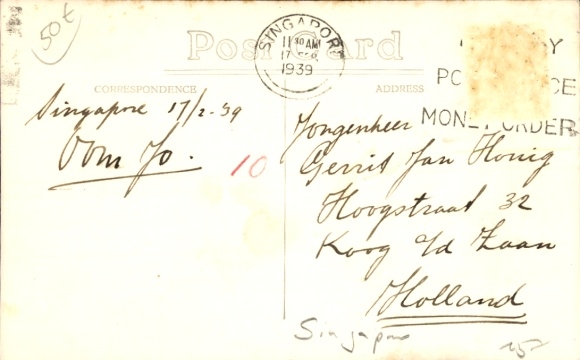 50 ct
Post Card
SINGAPORE
11 30 AM
17 FEB
1939
MONEY ORDER
CORRESPONDENCE
ADDRESS
Singapore 17/2-39
Oom Jo.
10
Jongenheer
Gerrit Jan Honig
Hoogstraat 32
Koog a/d Zaan
Holland
Singapore